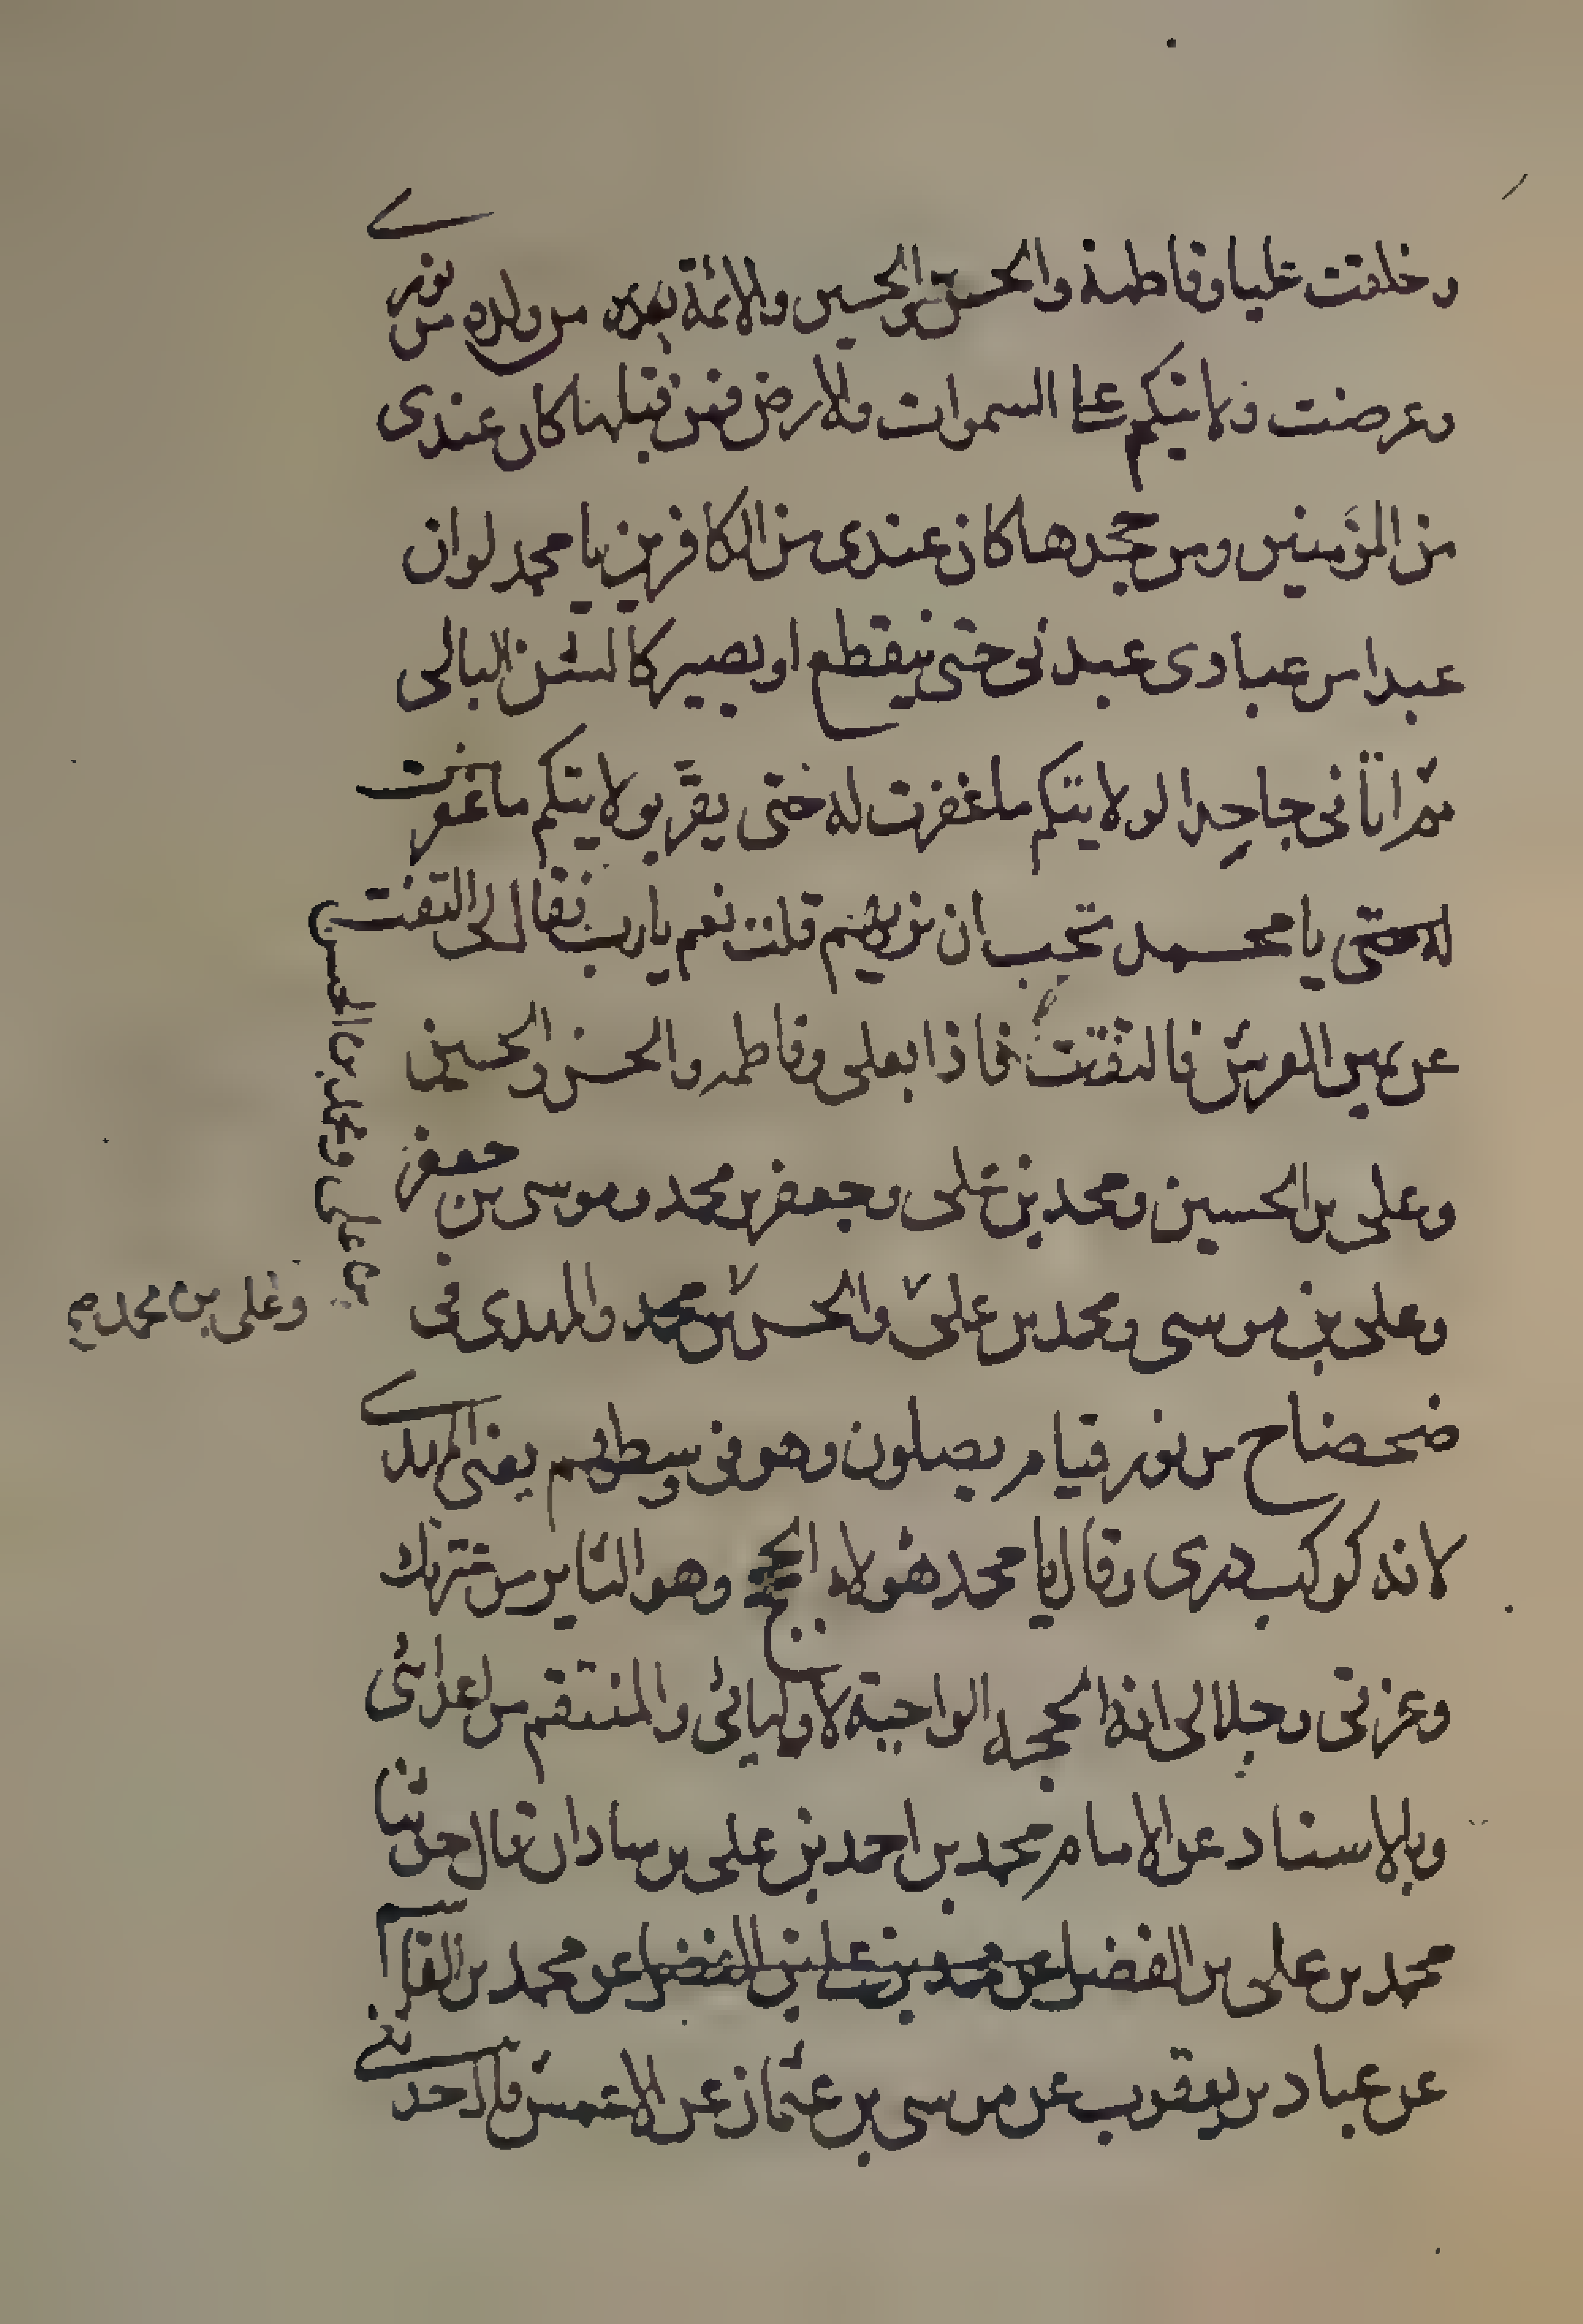 وخلقت عليا وفاطمة والحسن والحسين والائمة بعده من ولده من نوري
وعرضت ولايتكم على السموات والارض فمن قبلها كان عندى
من المؤمنين ومن جحدها كان عندى من الكافرين يا محمد لو ان
عبدا من عبادى عبدنى حتى ينقطع او يصير كالشن البالى
ثم اتانى جاحدا لولايتكم ما غفرت له حتى يقر بولايتكم ما غفرت
له حتى يا محمد تحب ان تريهم قلت نعم يا رب فقال لى التفت
عن يمين العرش فالتفت فاذا بعلى وفاطمه والحسن والحسين
وعلى بن الحسين ومحمد بن على وجعفر بن محمد وموسى بن جعفر
وعلى بن موسى ومحمد بن على والحسن بن محمد والمهدى فى
وعلى بن محمد صح
ضحضاح من نور قيام يصلون وهو فى وسطهم يعنى المهدي
كانه كوكب درى وقال يا محمد هؤلاء الحجج وهو الثاير من عترتك
وعزتى وجلالى انه الحجه الواجبة لاوليائى والمنتقم من اعدائى
وبالاسناد عن الامام محمد بن احمد بن على بن شاذان قال حدثنا
محمد بن على بن الفضل عن محمد بن على بن الفضل عن محمد بن القاسم
عن عباد بن يعقوب عن موسى بن عثمان عن الاعمش قال حدثني